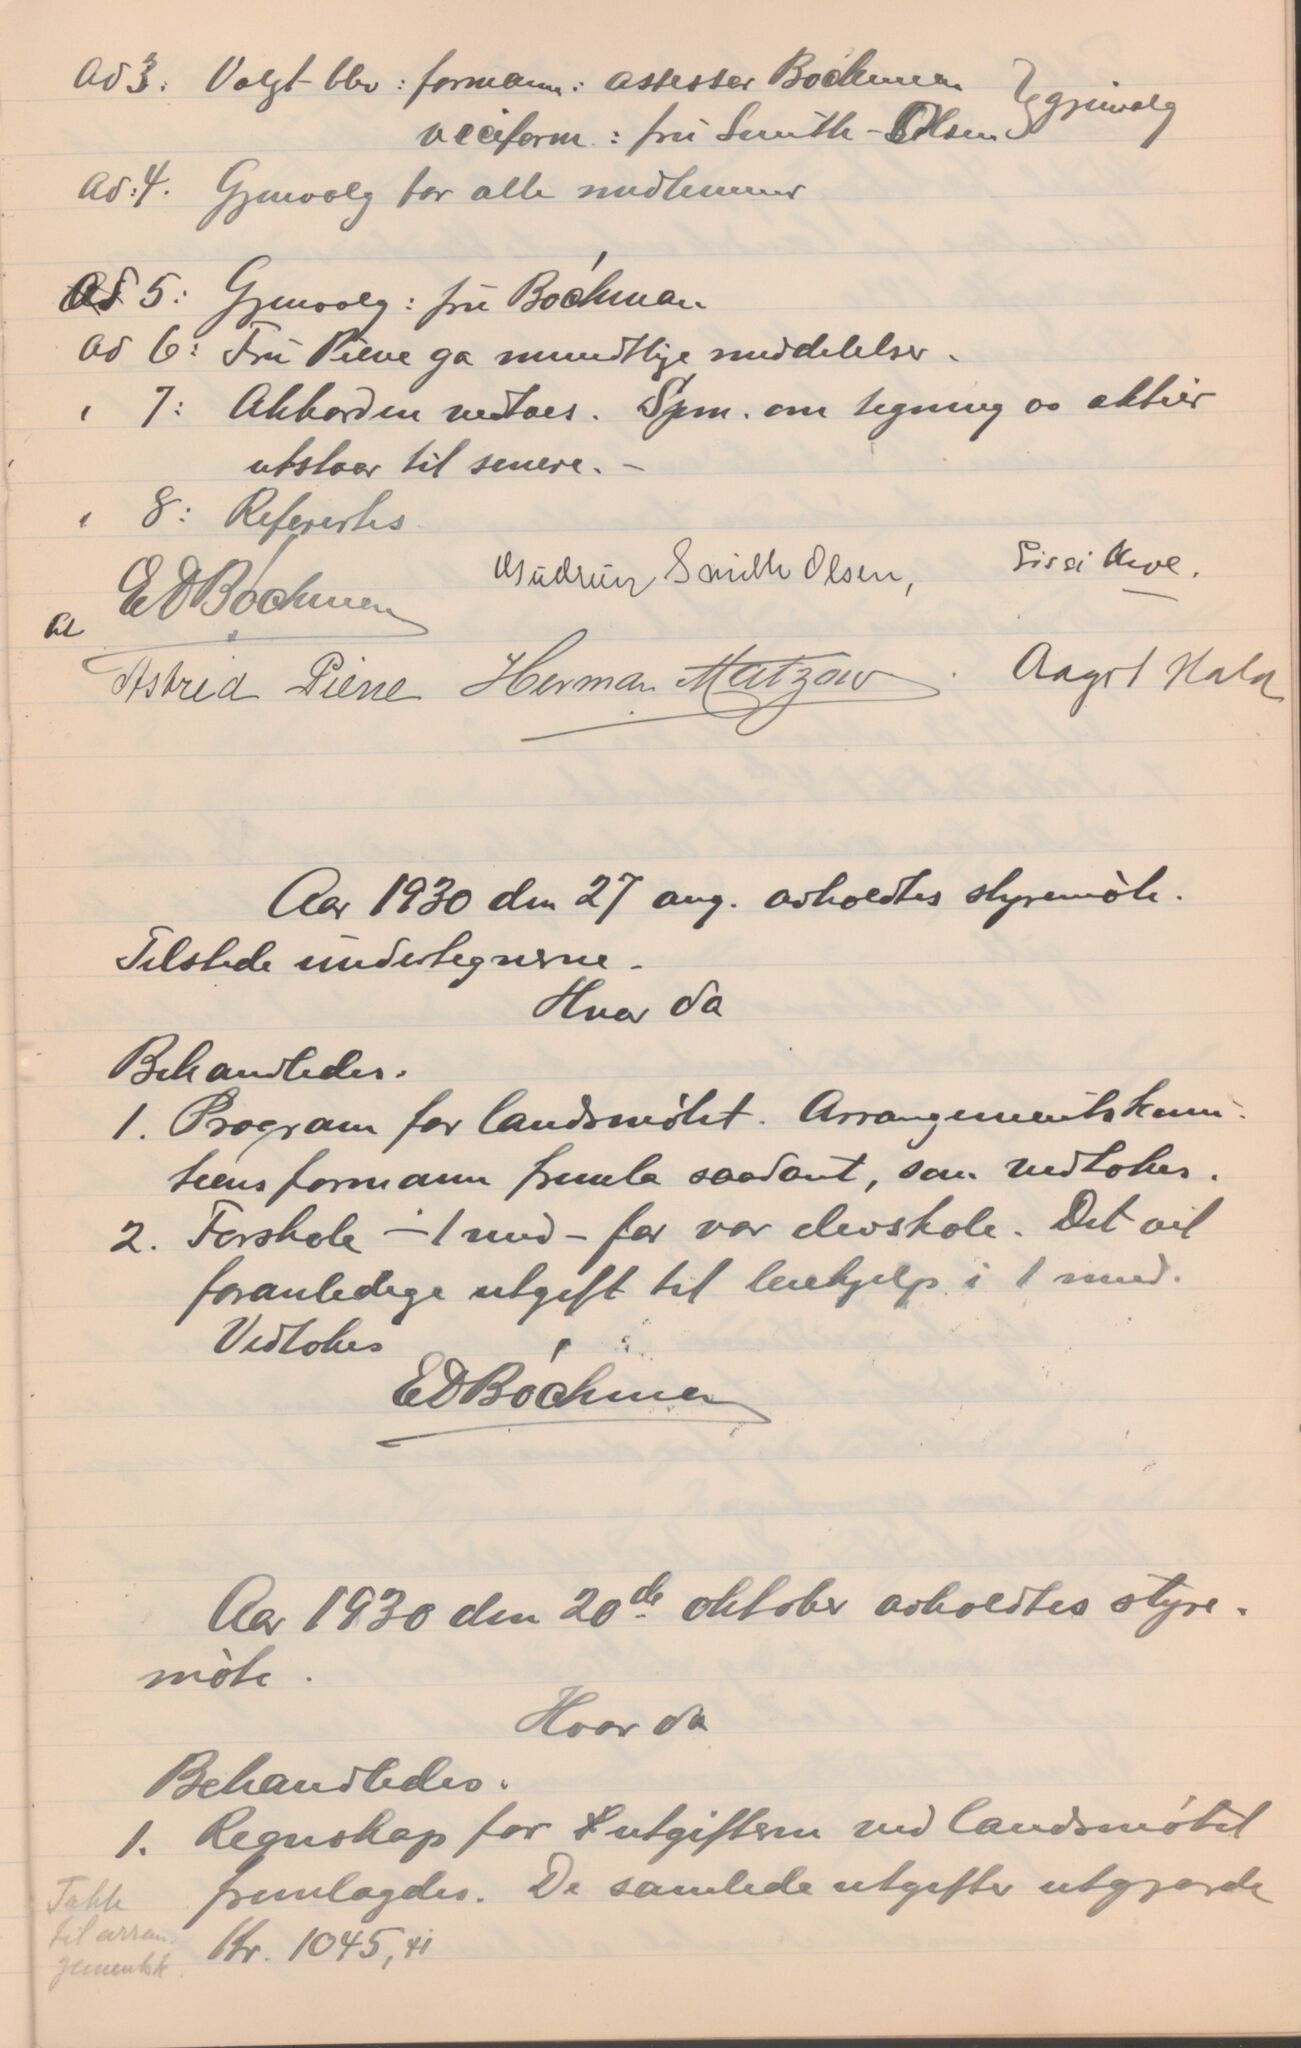 Ad 3: Valgt blev: formann: assessor Bøckman } gjenvalg
viceform.: fru Smith-Olsen
Ad: 4. Gjenvalg for alle medlemmer
Ad 5: Gjenvalg: fru Bøckman
Ad 6: Fru Piene ga mundtlige meddelelser.
" 7: Akkorden vedtoes. Spm. om tegning av aktier
utstaar til senere. -
" 8: Refertes
E D Bøckman Gudrun Smith Olsen, Sissi
Astrid Piene Herman Matzow Aagot Hald
Aar 1930 den 27 aug. avholdtes styremøte.
Tilstede undertegnerne.
Hvor da
Behandledes.
1. Program for landsmøtet. Arrangementskomi-
teens formann fremla saadant, som vedtokes.
2. Forskole - 1 mnd - for vor elevskole. Det vil
foranledige utgift til lærehjelp i 1 mnd.
Vedtokes
E D Bøckman
Aar 1930 den 20de oktober avholdtes styre-
møte.
Hvor da
Behandledes.
1. Regnskap for utgifterne ved landsmøtet
fremlagdes. De samlede utgifter utgjorde
Kr. 1045,41
Takk
til arran-
gementsk.